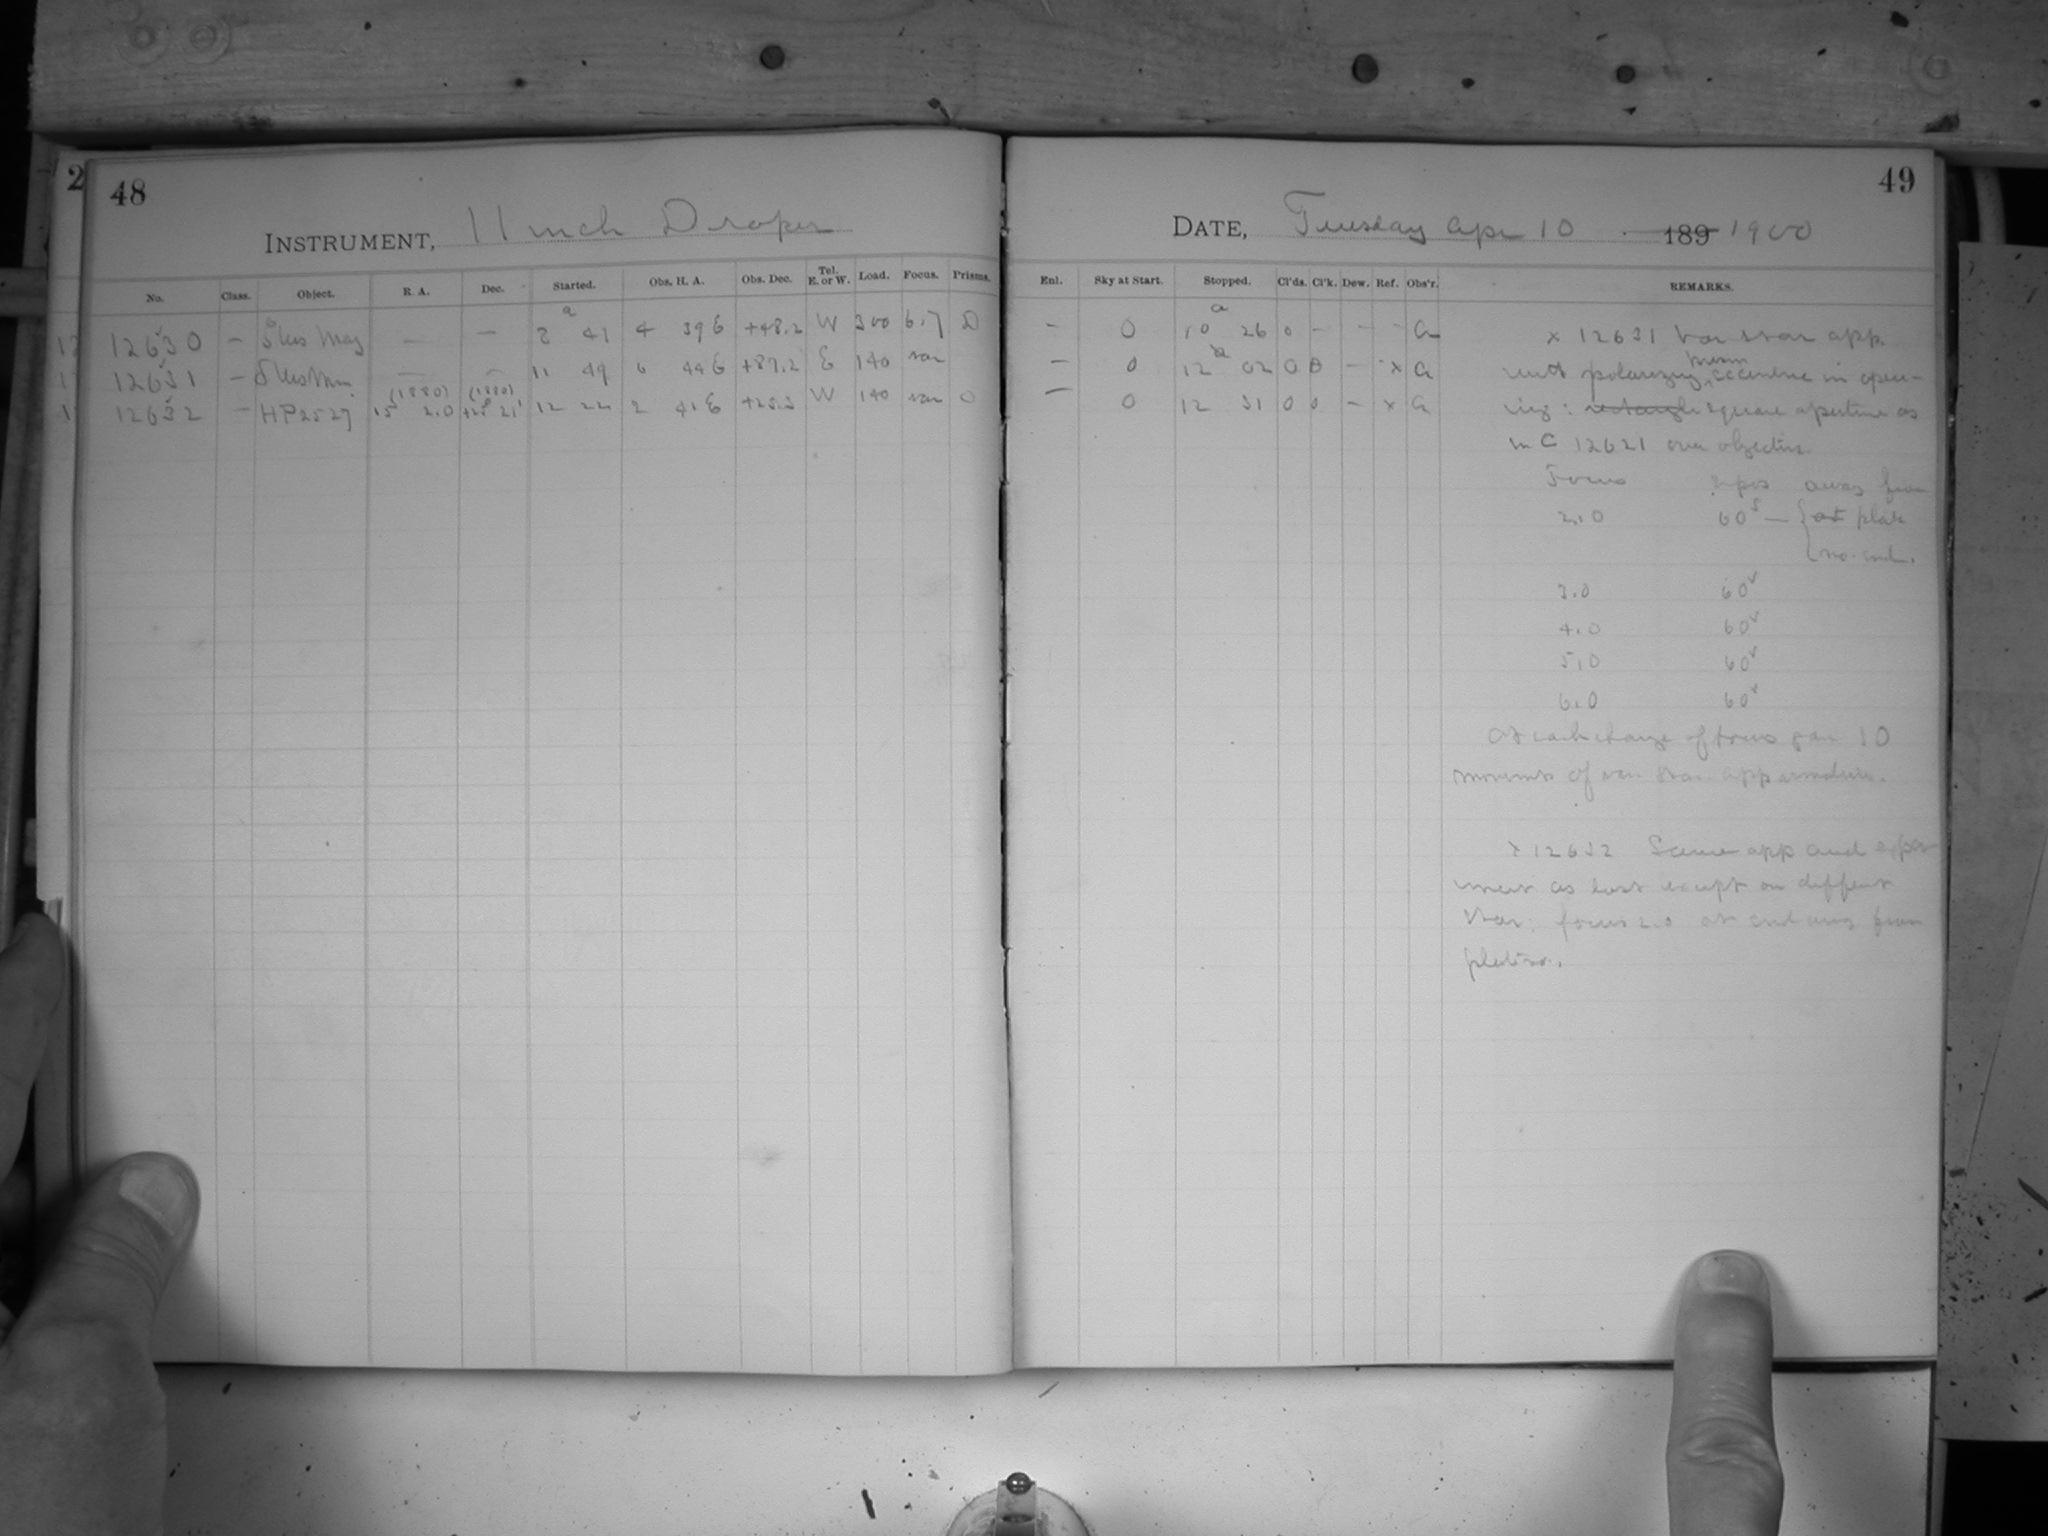 2
48
INSTRUMENT, 11 inch Draper
No. Class. Object. R. A. Dec. Started. Obs. H. A. Obs. Dec. Tel. E. or W. Load. Focus. Prisms.
12630 — — — 8 41 4 39 E +48.2 W 300 6.7 D
12631 — — — 11 49 6 44 E +87.2 E 140 var
(1880) (1880)
12632 — HP2527 15 2.0 +25 21 12 22 2 41 E +25.3 W 140 var 0
49
DATE, Tuesday Apr 10 189 1900
Enl. Sky at Start. Stopped. Cl'ds. Cl'k. Dew. Ref. Obs'r. REMARKS.
— 0 10 26 0 — — — a
— 0 12 02 0 0 — x a
— 0 12 31 0 0 — x a
x 12631 Var star app.
with polarizing prism eccentric in open-
ing: rectangle square aperture as
in C 12621 over objective
Focus expos away from
2.0 60s — at plate
no. end.
3.0 60
4.0 60
5.0 60
6.0 60
At each change of focus gave 10
movements of var star app armature.
x 12632 Same app and exper
iment as last except on different
star: focus 2.0 at end away from
plate no.